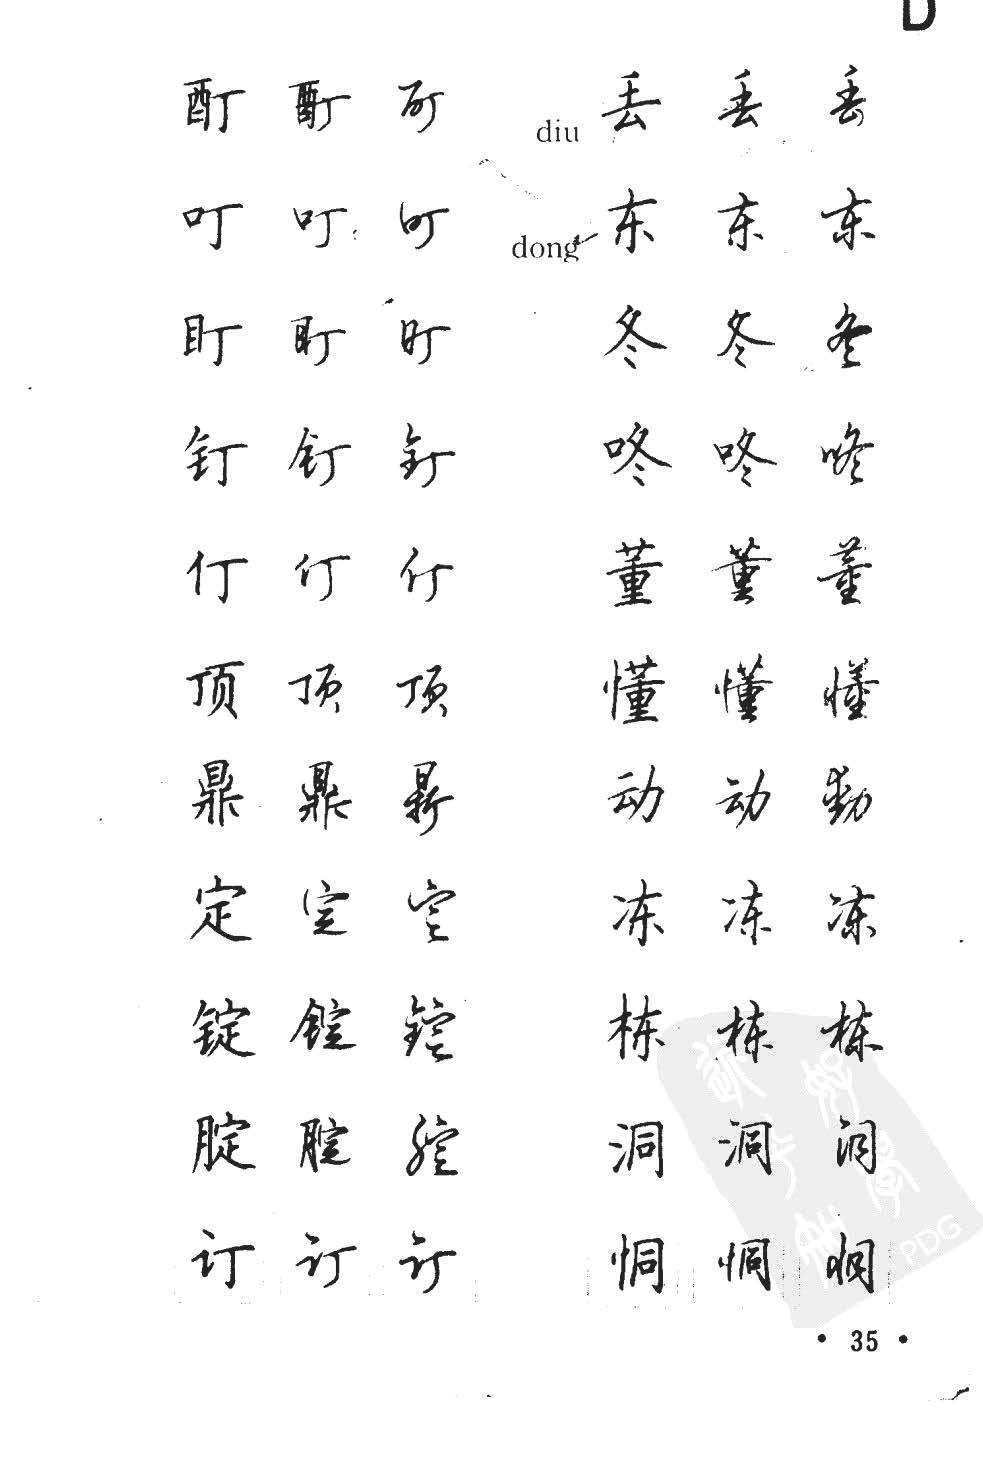 D
酊 酊 酊
叮 叮 叮
盯 盯 盯
钉 钉 钉
仃 仃 仃
顶 顶 顶
鼎 鼎 鼎
定 定 定
锭 锭 锭
腚 腚 腚
订 订 订
diu 丢 丢 丢
dong 东 东 东
冬 冬 冬
咚 咚 咚
董 董 董
懂 懂 懂
动 动 动
冻 冻 冻
栋 栋 栋
洞 洞 洞
恫 恫 恫
PDG
• 35 •